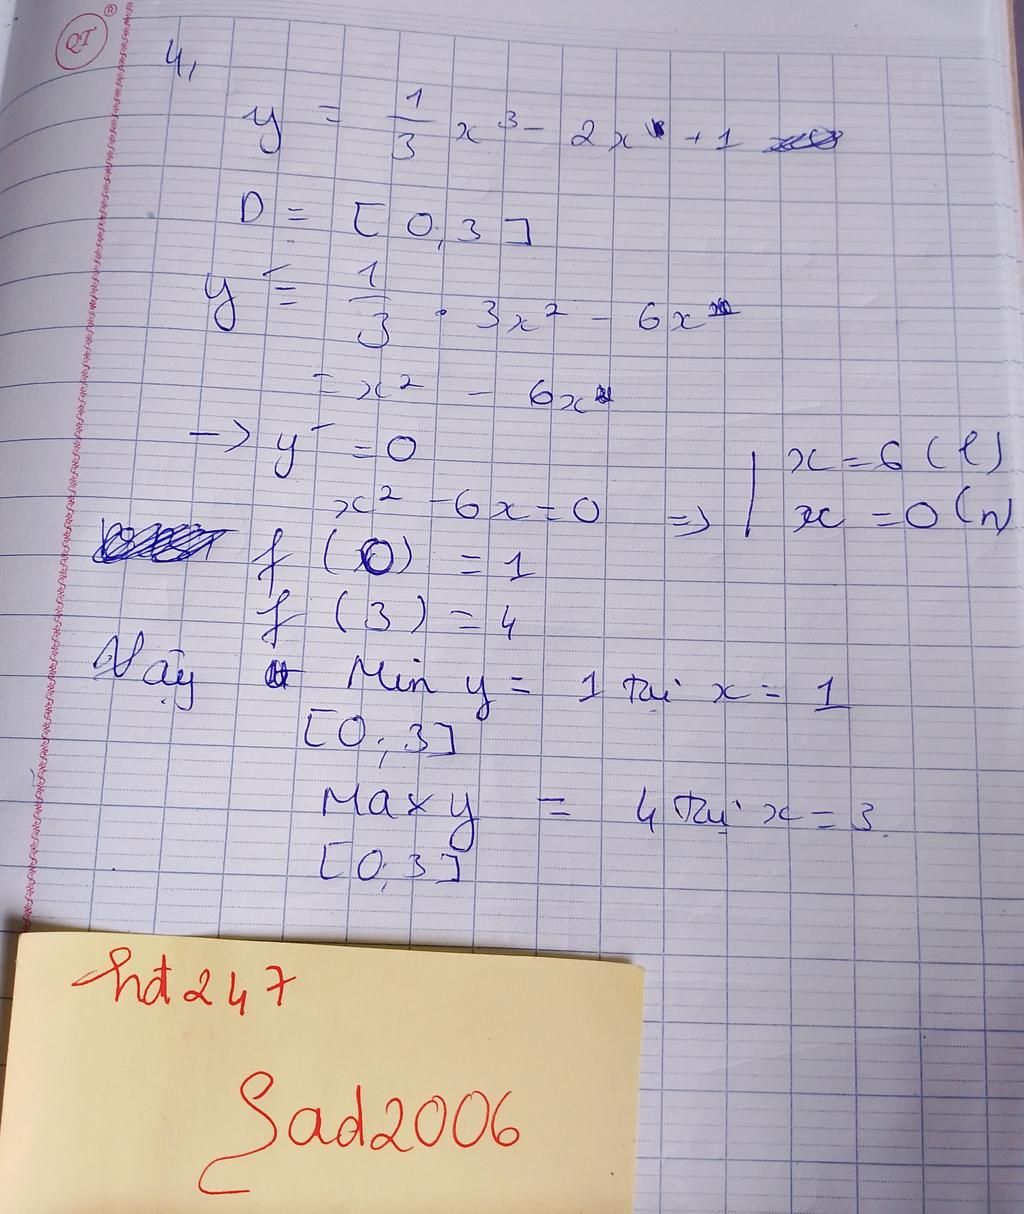 QI
4,
y = 1/3 x³ - 2x + 1
D = [0,3]
y' = 1/3 . 3x² - 6x
= x² - 6x
-> y' = 0
x² - 6x = 0 => | x = 6 (l)
x = 0 (n)
f (0) = 1
f (3) = 4
Vậy Min y = 1 tại x = 1
[0,3]
Max y = 4 tại x = 3
[0,3]
hd247
Sad2006